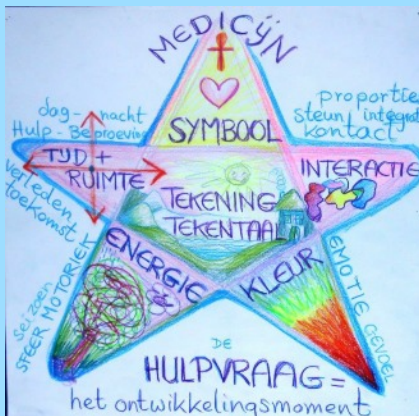 MEDICIJN
SYMBOOL
dag - nacht
Hulp - Beproeving
TIJD +
RUIMTE
verleden
toekomst
proportie
steun integratie
kontakt
INTERACTIE
TEKENING
TEKENTAAL
ENERGIE
KLEUR
seizoen
SFEER MOTORIEK
EMOTIE GEVOEL
DE
HULPVRAAG =
het ontwikkelingsmoment